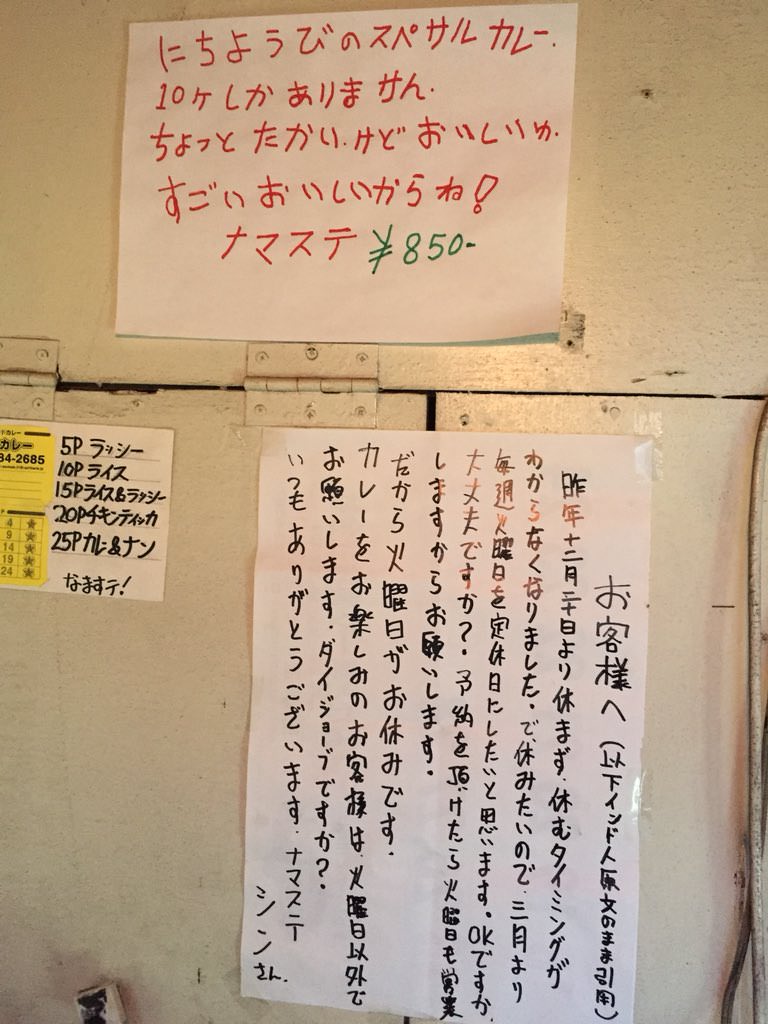 にちようびのスペサルカレー.
10ケしかありません.
ちょっとたかい.けどおいしいゅ.
すごいおいしいからね!
ナマステ ¥850-
カレー
84-2685
4 ★
9 ★
14 ★
19 ★
24 ★
5P ラッシー
10P ライス
15P ライス&ラッシー
20P チキンティッカ
25P カレー&ナン
なますテ!
お客様へ(以下インド人原文のまま引用)
昨年十二月二十日より休まず、休むタイミングが
わからなくなりました。で、休みたいので、三月より
毎週火曜日を定休日にしたいと思います。OKですか
大丈夫ですか?.予約を頂けたら火曜日も営業
しますからお願いします.
だから火曜日がお休みです.
カレーをお楽しみのお客様は、火曜日以外で
お願いします.ダイジョーブですか?
いつもありがとうございます.ナマステ
シンさん.